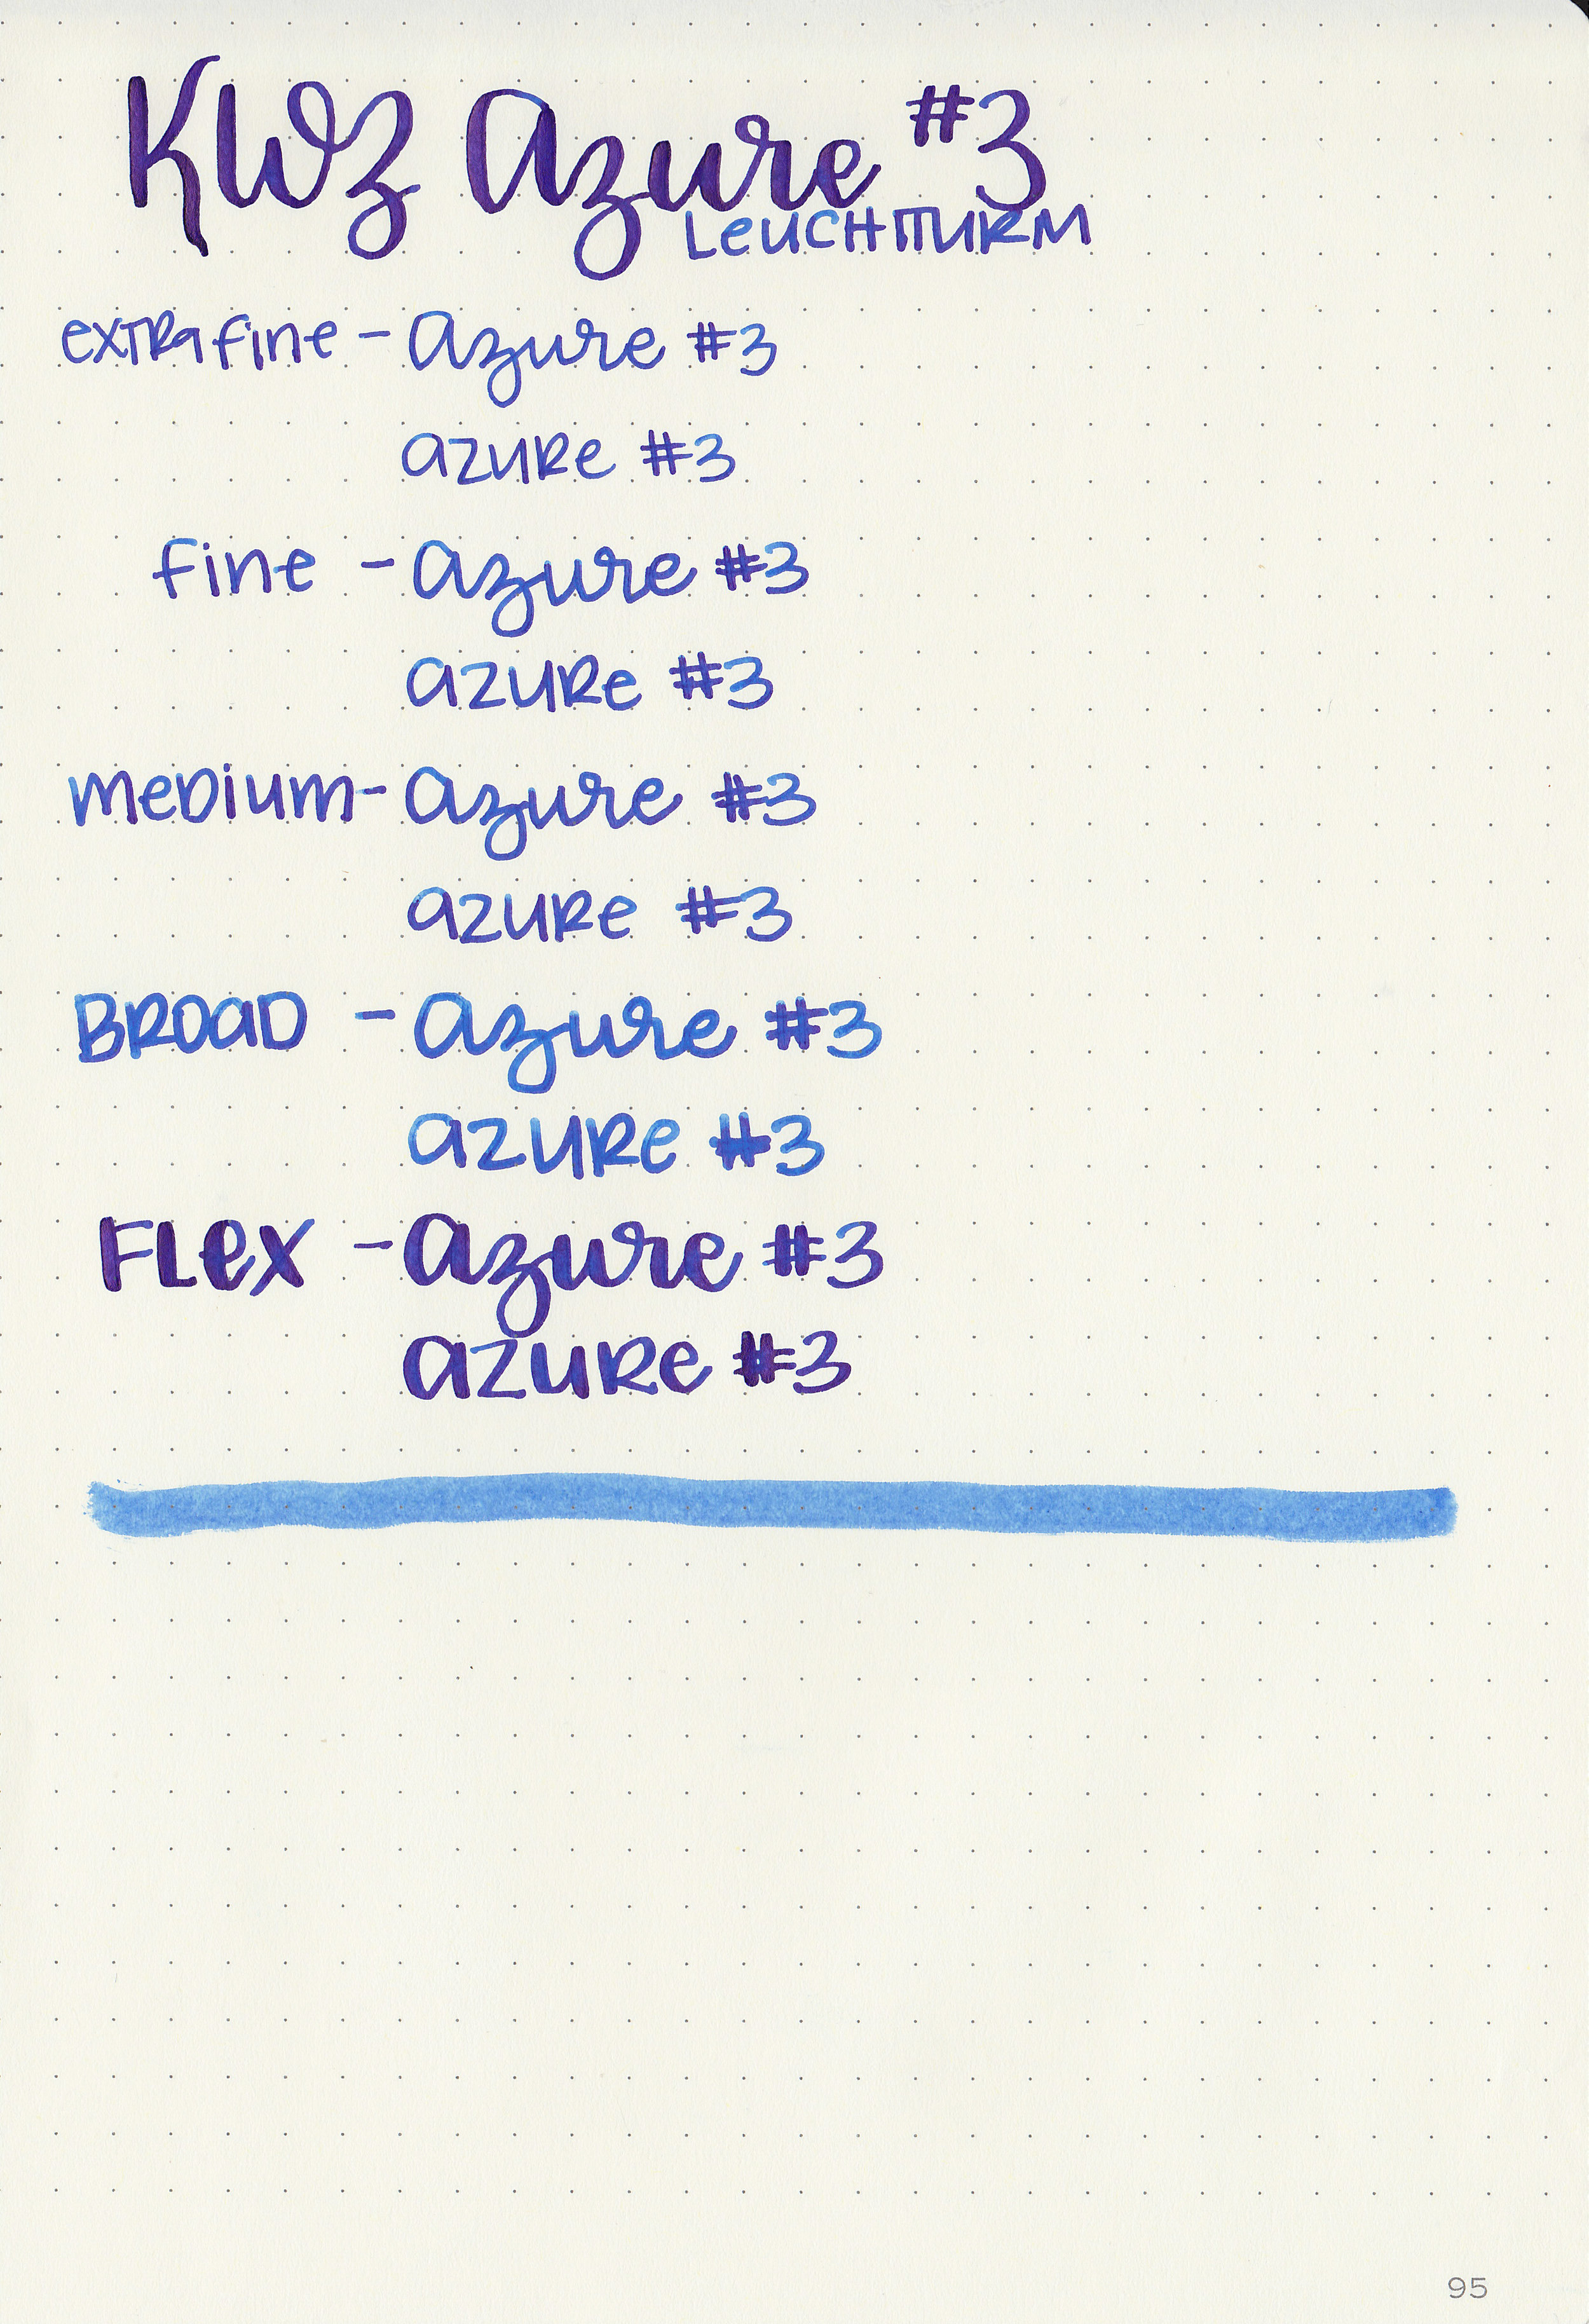 KWZ Azure #3
LEUCHTTURM
extra fine - azure #3
azure #3
fine - azure #3
azure #3
medium - azure #3
azure #3
BROAD - azure #3
azure #3
FLEX - azure #3
azure #3
95